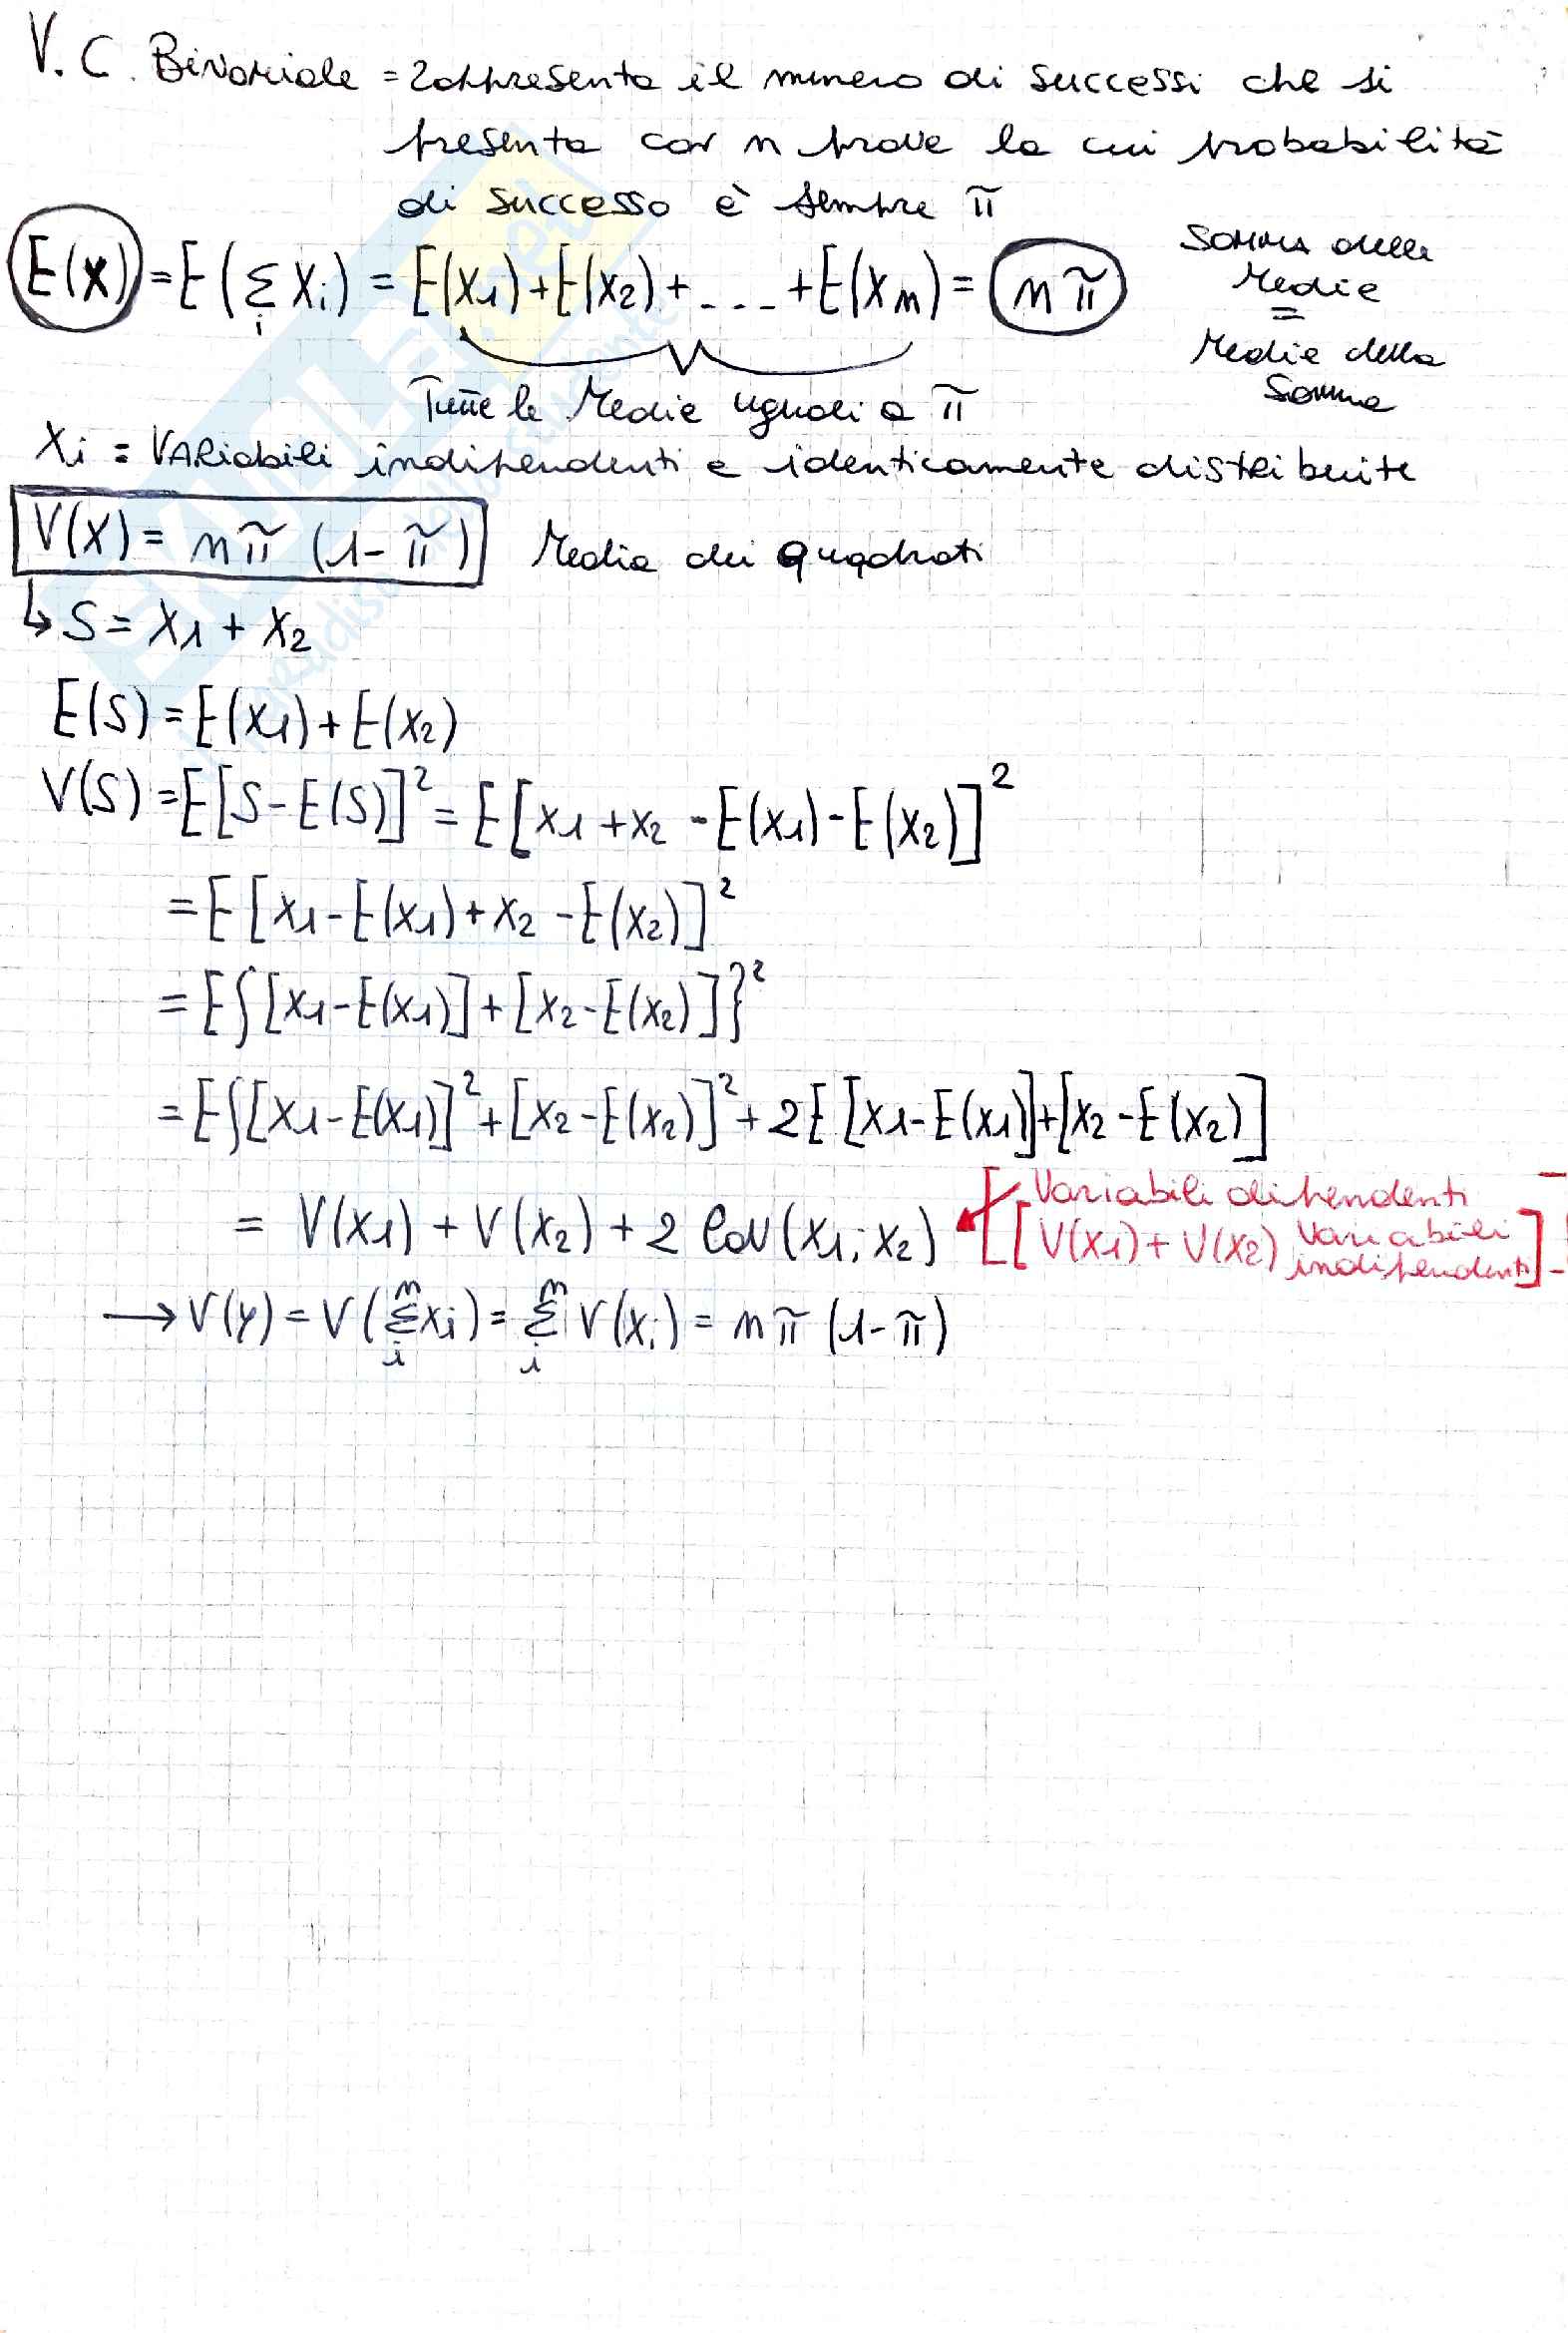 V.C. Binomiale = rappresenta il numero di successi che si
presenta con n prove la cui probabilità
di successo è sempre π
E(X) = E(Σ_i Xi) = E(X1)+E(X2)+...+E(Xn) = nπ
Somma delle
Medie
=
Media della
Somma
Tutte le Medie uguali a π
Xi = VARiabili indipendenti e identicamente distribuite
V(X) = nπ (1-π) Media dei quadrati
↳ S = X1 + X2
E(S) = E(X1) + E(X2)
V(S) = E[S-E(S)]² = E[X1+X2 -E(X1)-E(X2)]²
= E[X1-E(X1)+X2-E(X2)]²
= E{[X1-E(X1)]+[X2-E(X2)]}²
= E{[X1-E(X1)]²+[X2-E(X2)]²+2E[X1-E(X1)]+[X2-E(X2)]
= V(X1) + V(X2) + 2 Cov(X1; X2)
Variabili dipendenti
[V(X1)+V(X2) Variabili
indipendenti]
→ V(Y) = V(Σ_i^n Xi) = Σ_i^n V(Xi) = nπ (1-π)